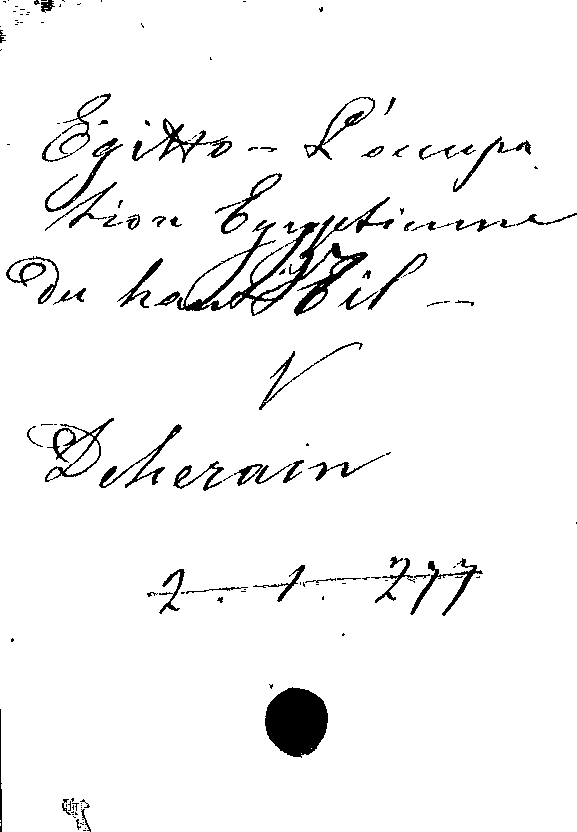 Egitto - L'occupa
tion Egyptienne
Du haut Nil -
V
Deherain
2 . 1 . 277